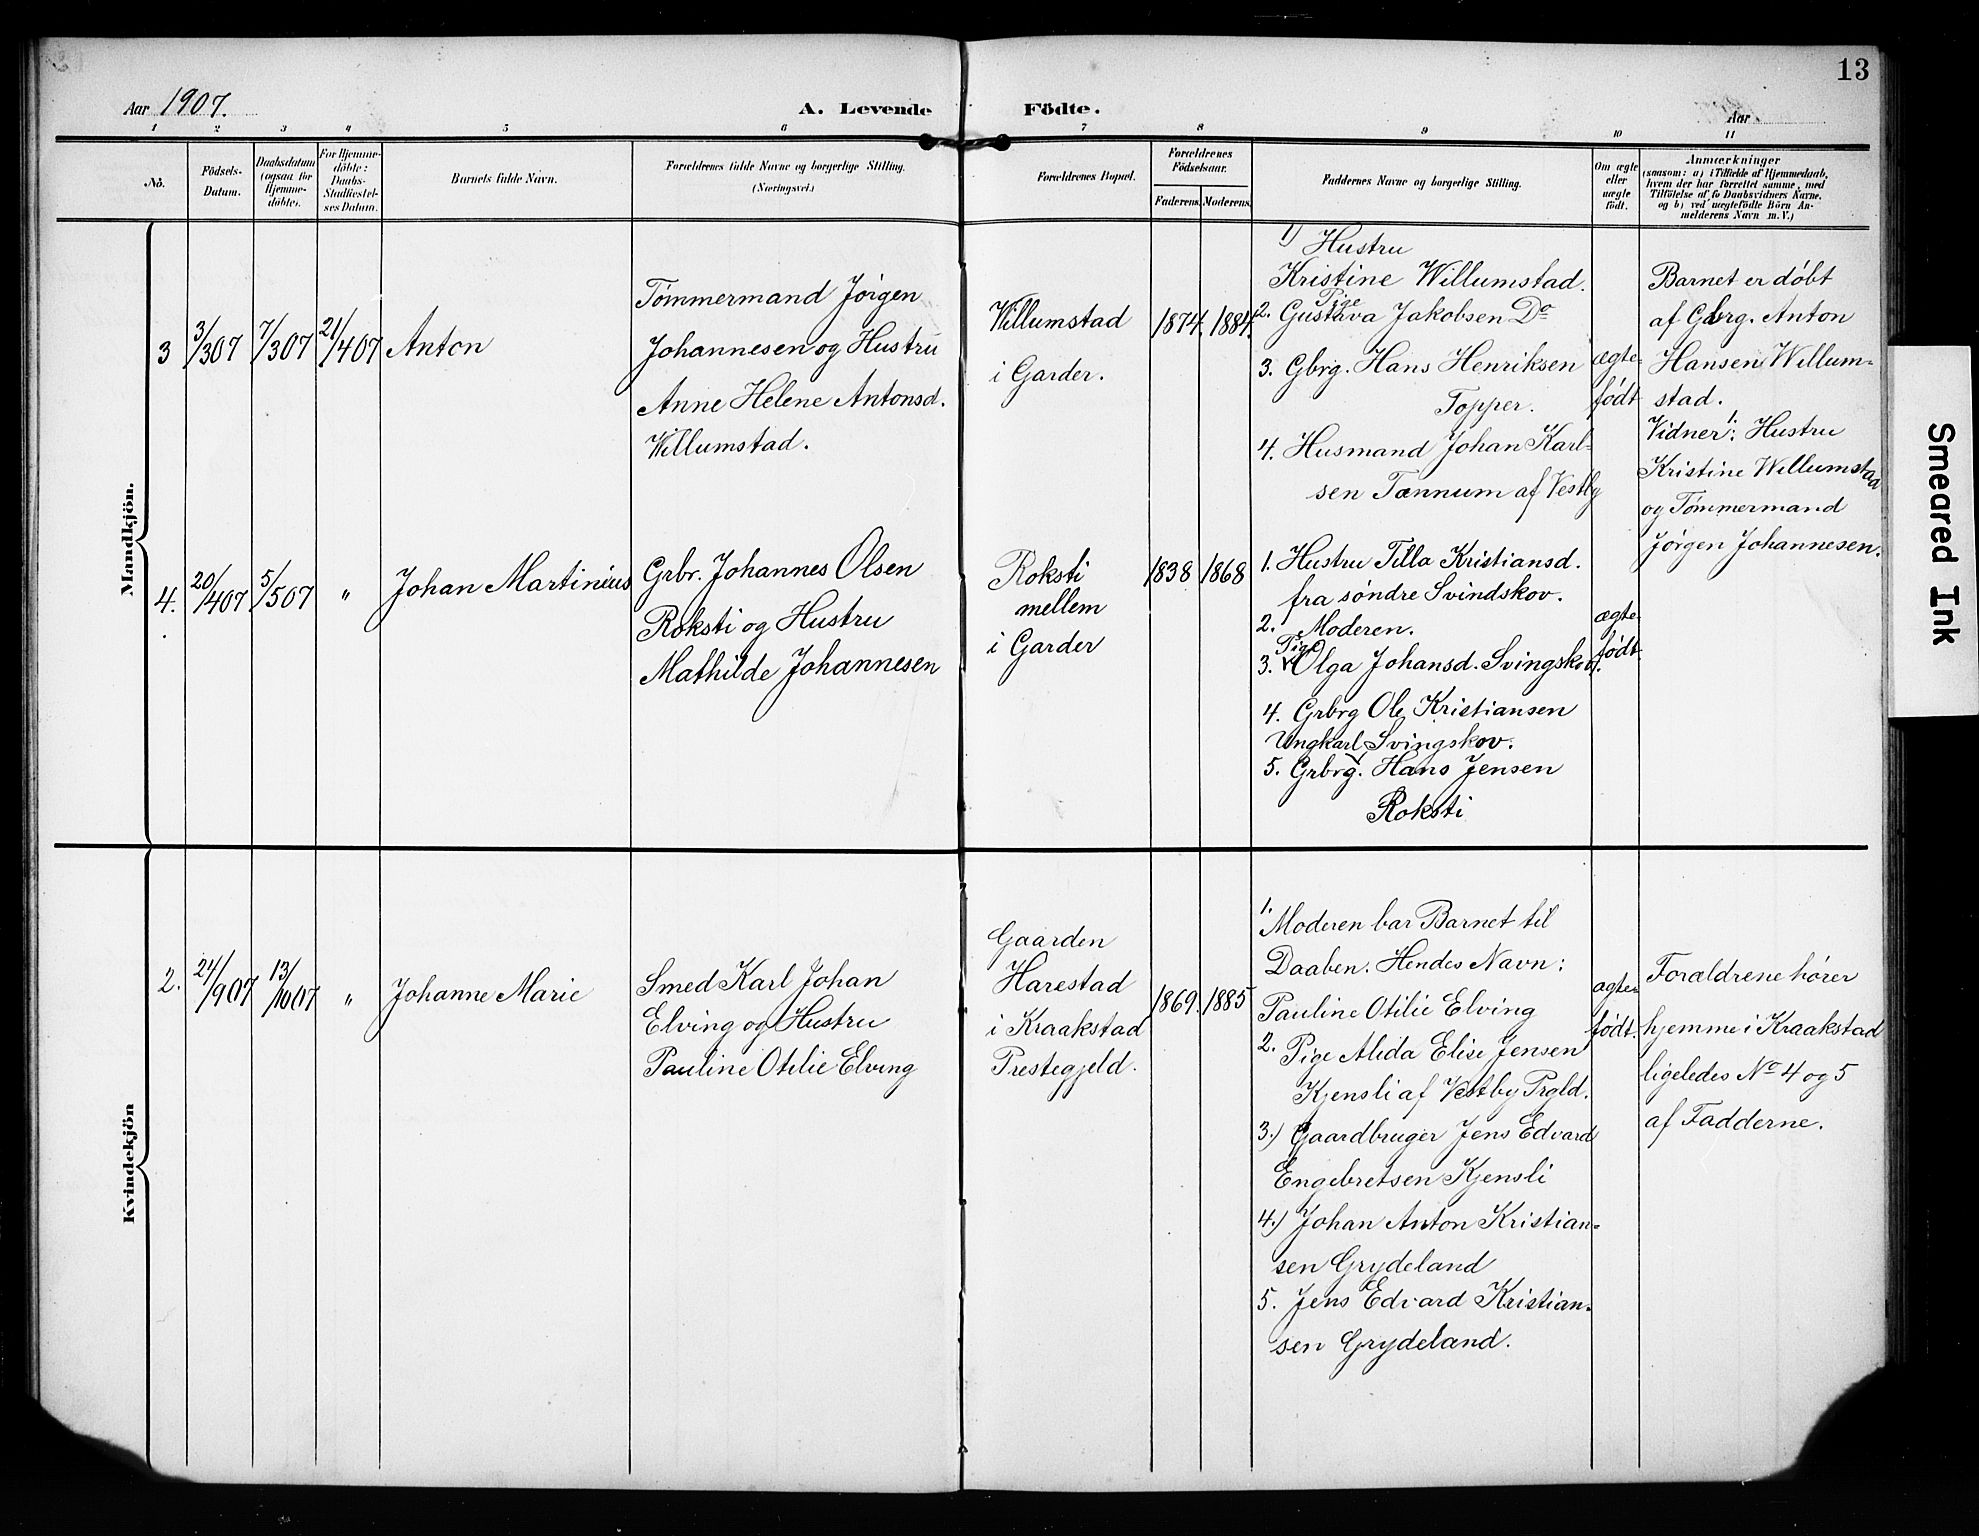 13
Aar 1907.
A. Levende Födte.
Aar
1 2 3 4 5 6 7 8 9 10 11
No.
Födsels-
Datum.
Daabsdatum
(ogsaa for
Hjemme-
döbte).
For Hjemme-
döbte:
Daabs-
Stadfæstel-
ses Datum.
Barnets fulde Navn.
Forældrenes fulde Navne og borgerlige Stilling.
(Næringsvei.)
Forældrenes Bopæl.
Forældrenes
Födselsaar.
Faderens. Moderens.
Faddernes Navne og borgerlige Stilling.
Om ægte
eller
uægte
födt.
Anmærkninger
(saasom: a) i Tilfælde af Hjemmedaab,
hvem der har forrettet samme, med
Tilföielse af to Daabsvidners Navne,
og b) ved uægtefödte Börn An-
melderens Navn m. V.)
Mandkjön.
3
3/307
7/307
21/407
Anton
Tømmermand Jørgen
Johannesen og Hustru
Anne Helene Antonsd.
Willumstad.
Willumstad
i Garder.
1874. 1884.
1) Hustru
Kristine Willumstad.
Pige
2. Gustava Jakobsen Do
3. Gbrg. Hans Henriksen
Topper.
4. Husmand Johan Karl-
sen Tannum af Vestby
ægte-
født
Barnet er døbt
af Gbrg. Anton
Hansen Willum-
stad.
Vidner: 1. Hustru
Kristine Willumstad
og Tømmermand
Jørgen Johannesen.
4.
20/407
5/507
"
Johan Martinius
Grbr. Johannes Olsen
Roksti og Hustru
Mathilde Johannesen
Roksti
mellem
i Garder
1838 1868
1. Hustru Tilla Kristiansd.
fra søndre Svindskov.
2. Moderen.
Pige
3. Olga Johansd. Svingskov.
4. Grbrg Ole Kristiansen
Ungkarl Svingskov.
5. Grbrg. Hans Jensen
Roksti
ægte-
født.
Kvindekjön
2.
24/907
13/1007
"
Johanne Marie
Smed Karl Johan
Elving og Hustru
Pauline Otilie Elving
Gaarden
Harestad
i Kraakstad
Prestegjeld.
1869. 1885
1. Moderen bar Barnet til
Daaben. Hendes Navn:
Pauline Otilie Elving
2. Pige Alida Elise Jensen
Kjensli af Vestby Prgld.
3.) Gaardbruger Jens Edvard
Engebretsen Kjensli
4.) Johan Anton Kristian-
sen Grydeland
5. Jens Edvard Kristian-
sen Grydeland.
ægte-
født.
Forældrene hører
hjemme i Kraakstad
ligeledes No 4 og 5
af Fadderne.
Smeared Ink